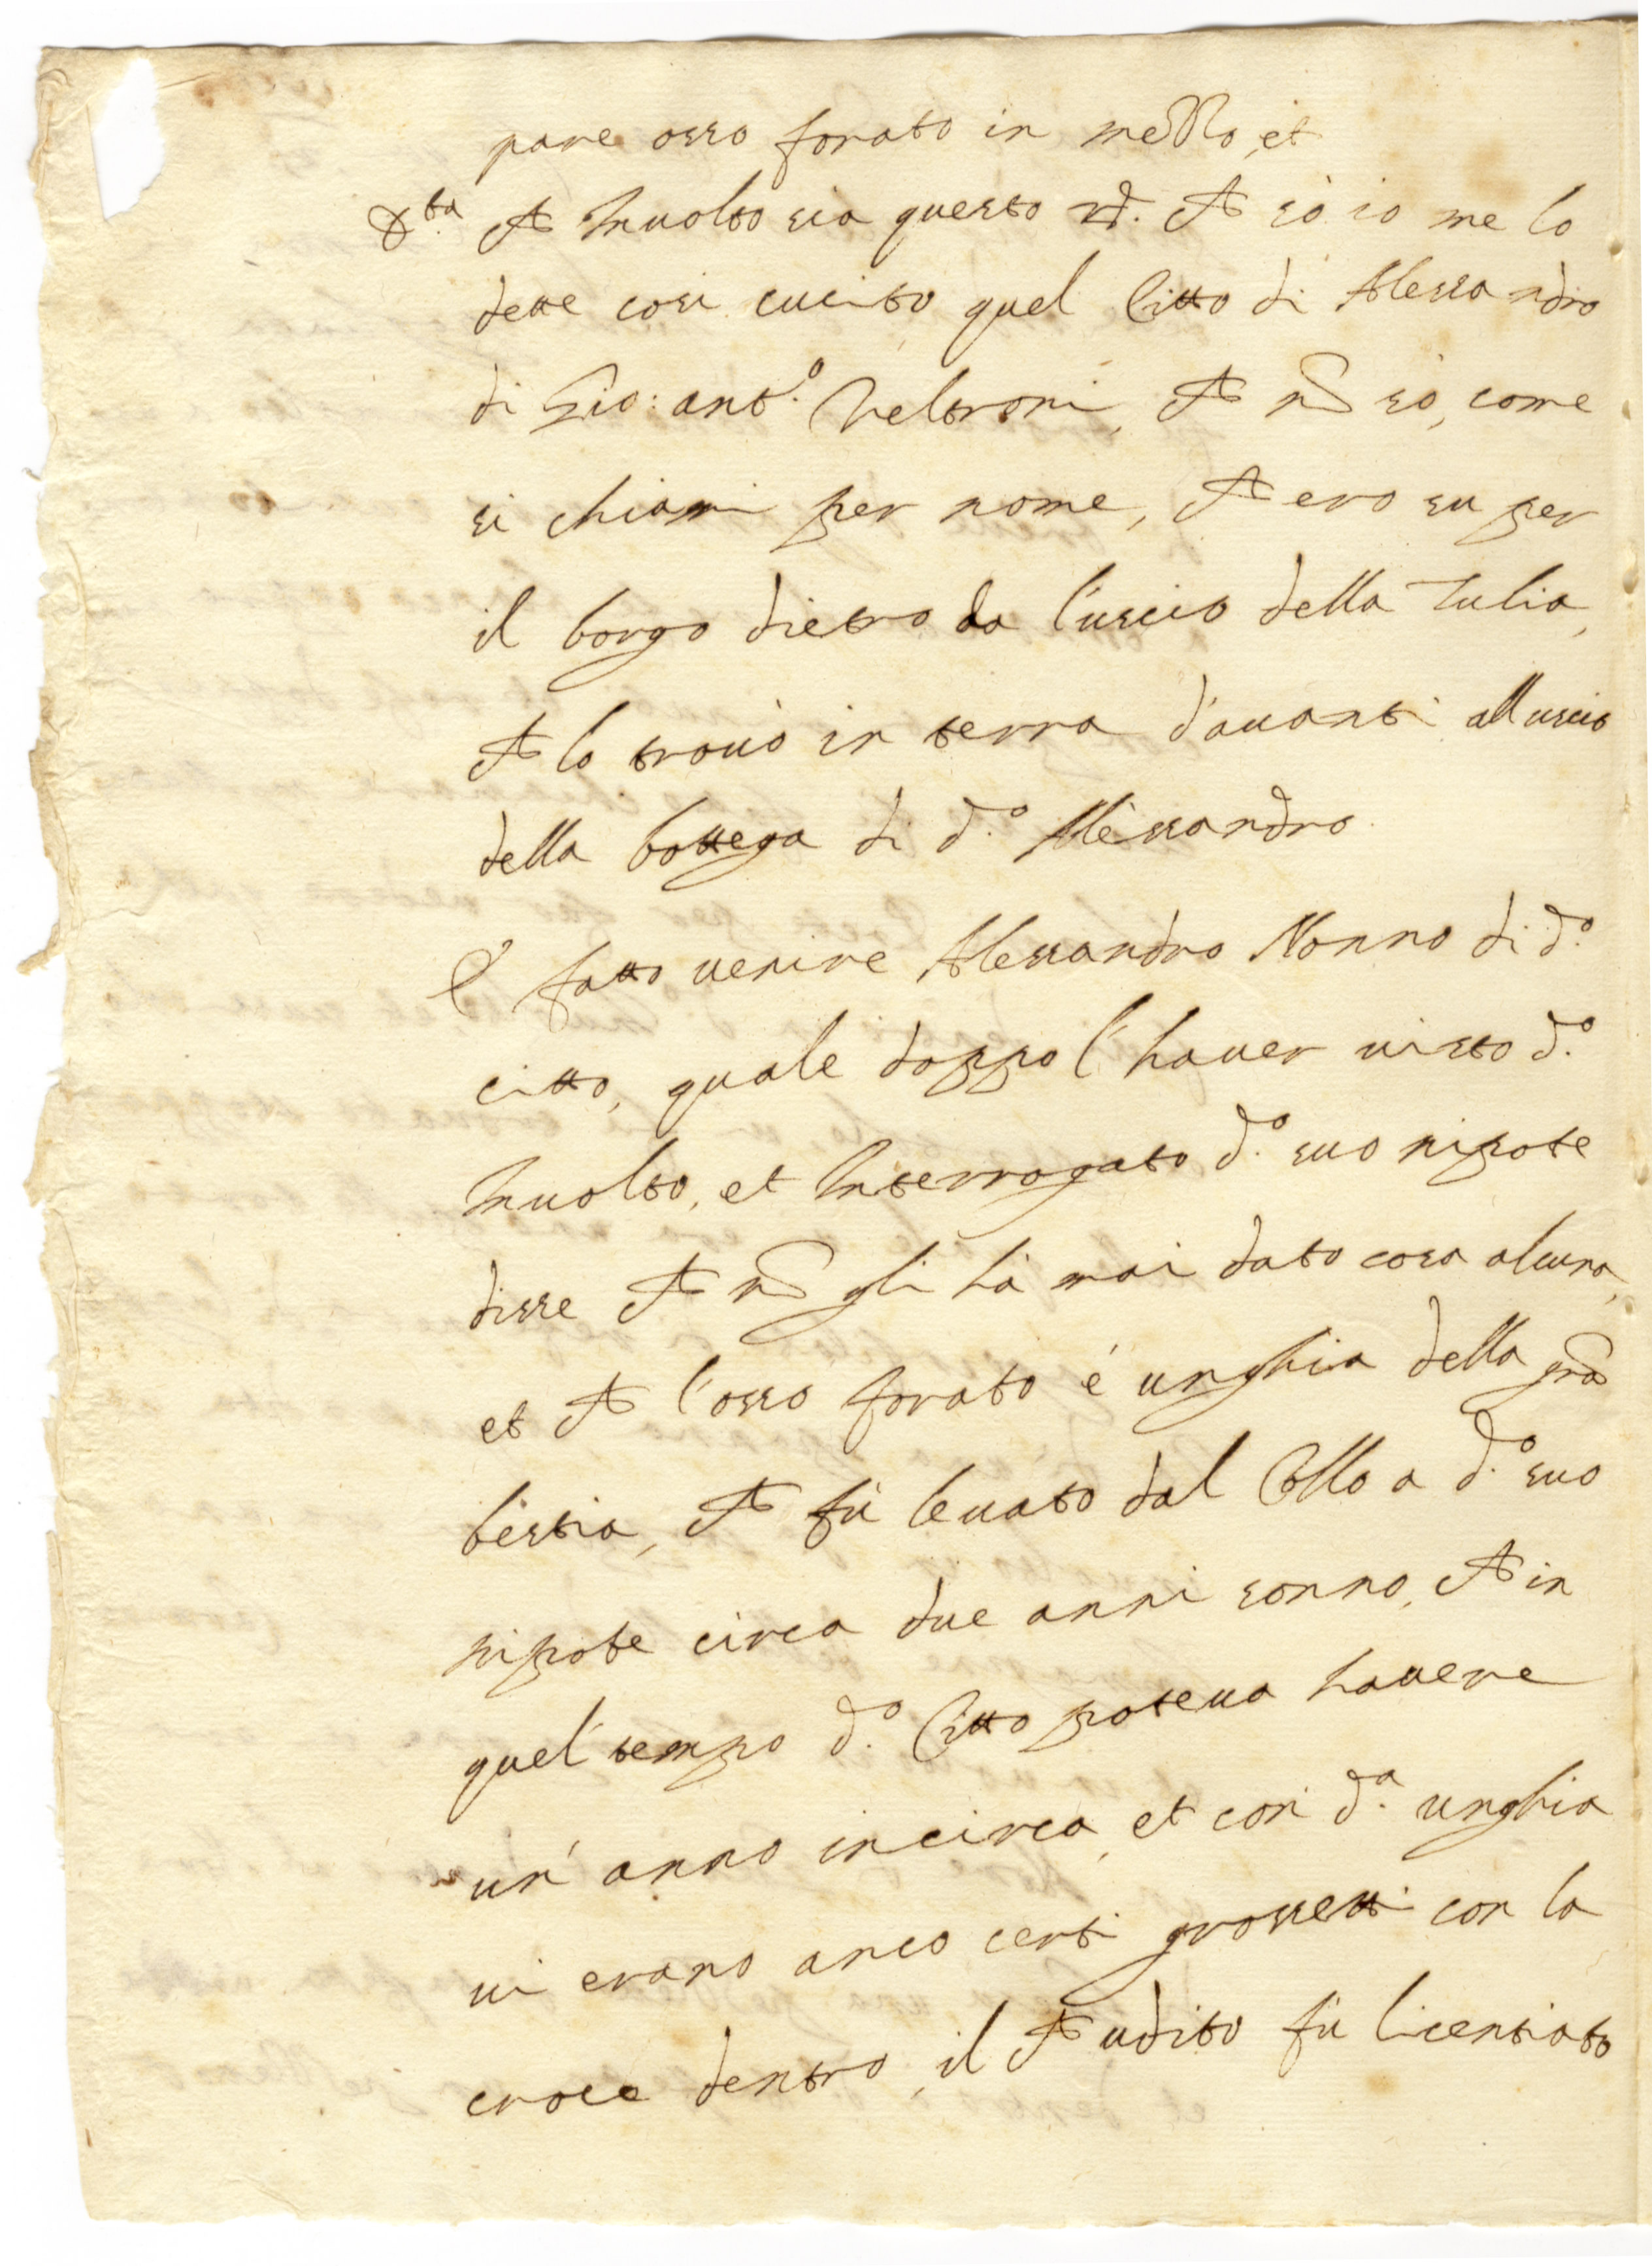 pare osso forato in mezzo, et
D.ta che Involto sia questo rd. che sò io me lo
dette cosi cucito quel Citto di Alessandro
di Gio: ant.o Veltroni, che nõ sò, come
si chiami per nome, che ero su per
il borgo dietro da l'uscio della Tulia,
che lo trovò in terra d'avanti all uscio
della bottega di d.o Alessandro.
E fatto venire Alessandro Nonno di d.o
citto, quale doppo l'haver visto d.o
Involto, et Interrogato d.o suo nipote
disse che nõ gli hà mai dato cosa alcuna,
et che l'osso forato é unghia della grã
bestia, che fù levato dal Collo a d.o suo
nipote circa due anni sonno, che in
quel tempo d.o Citto poteva havere
un' anno incirca, et con d.a unghia
vi erano anco certi grossetti con la
croce dentro, il che udito fù licentiato